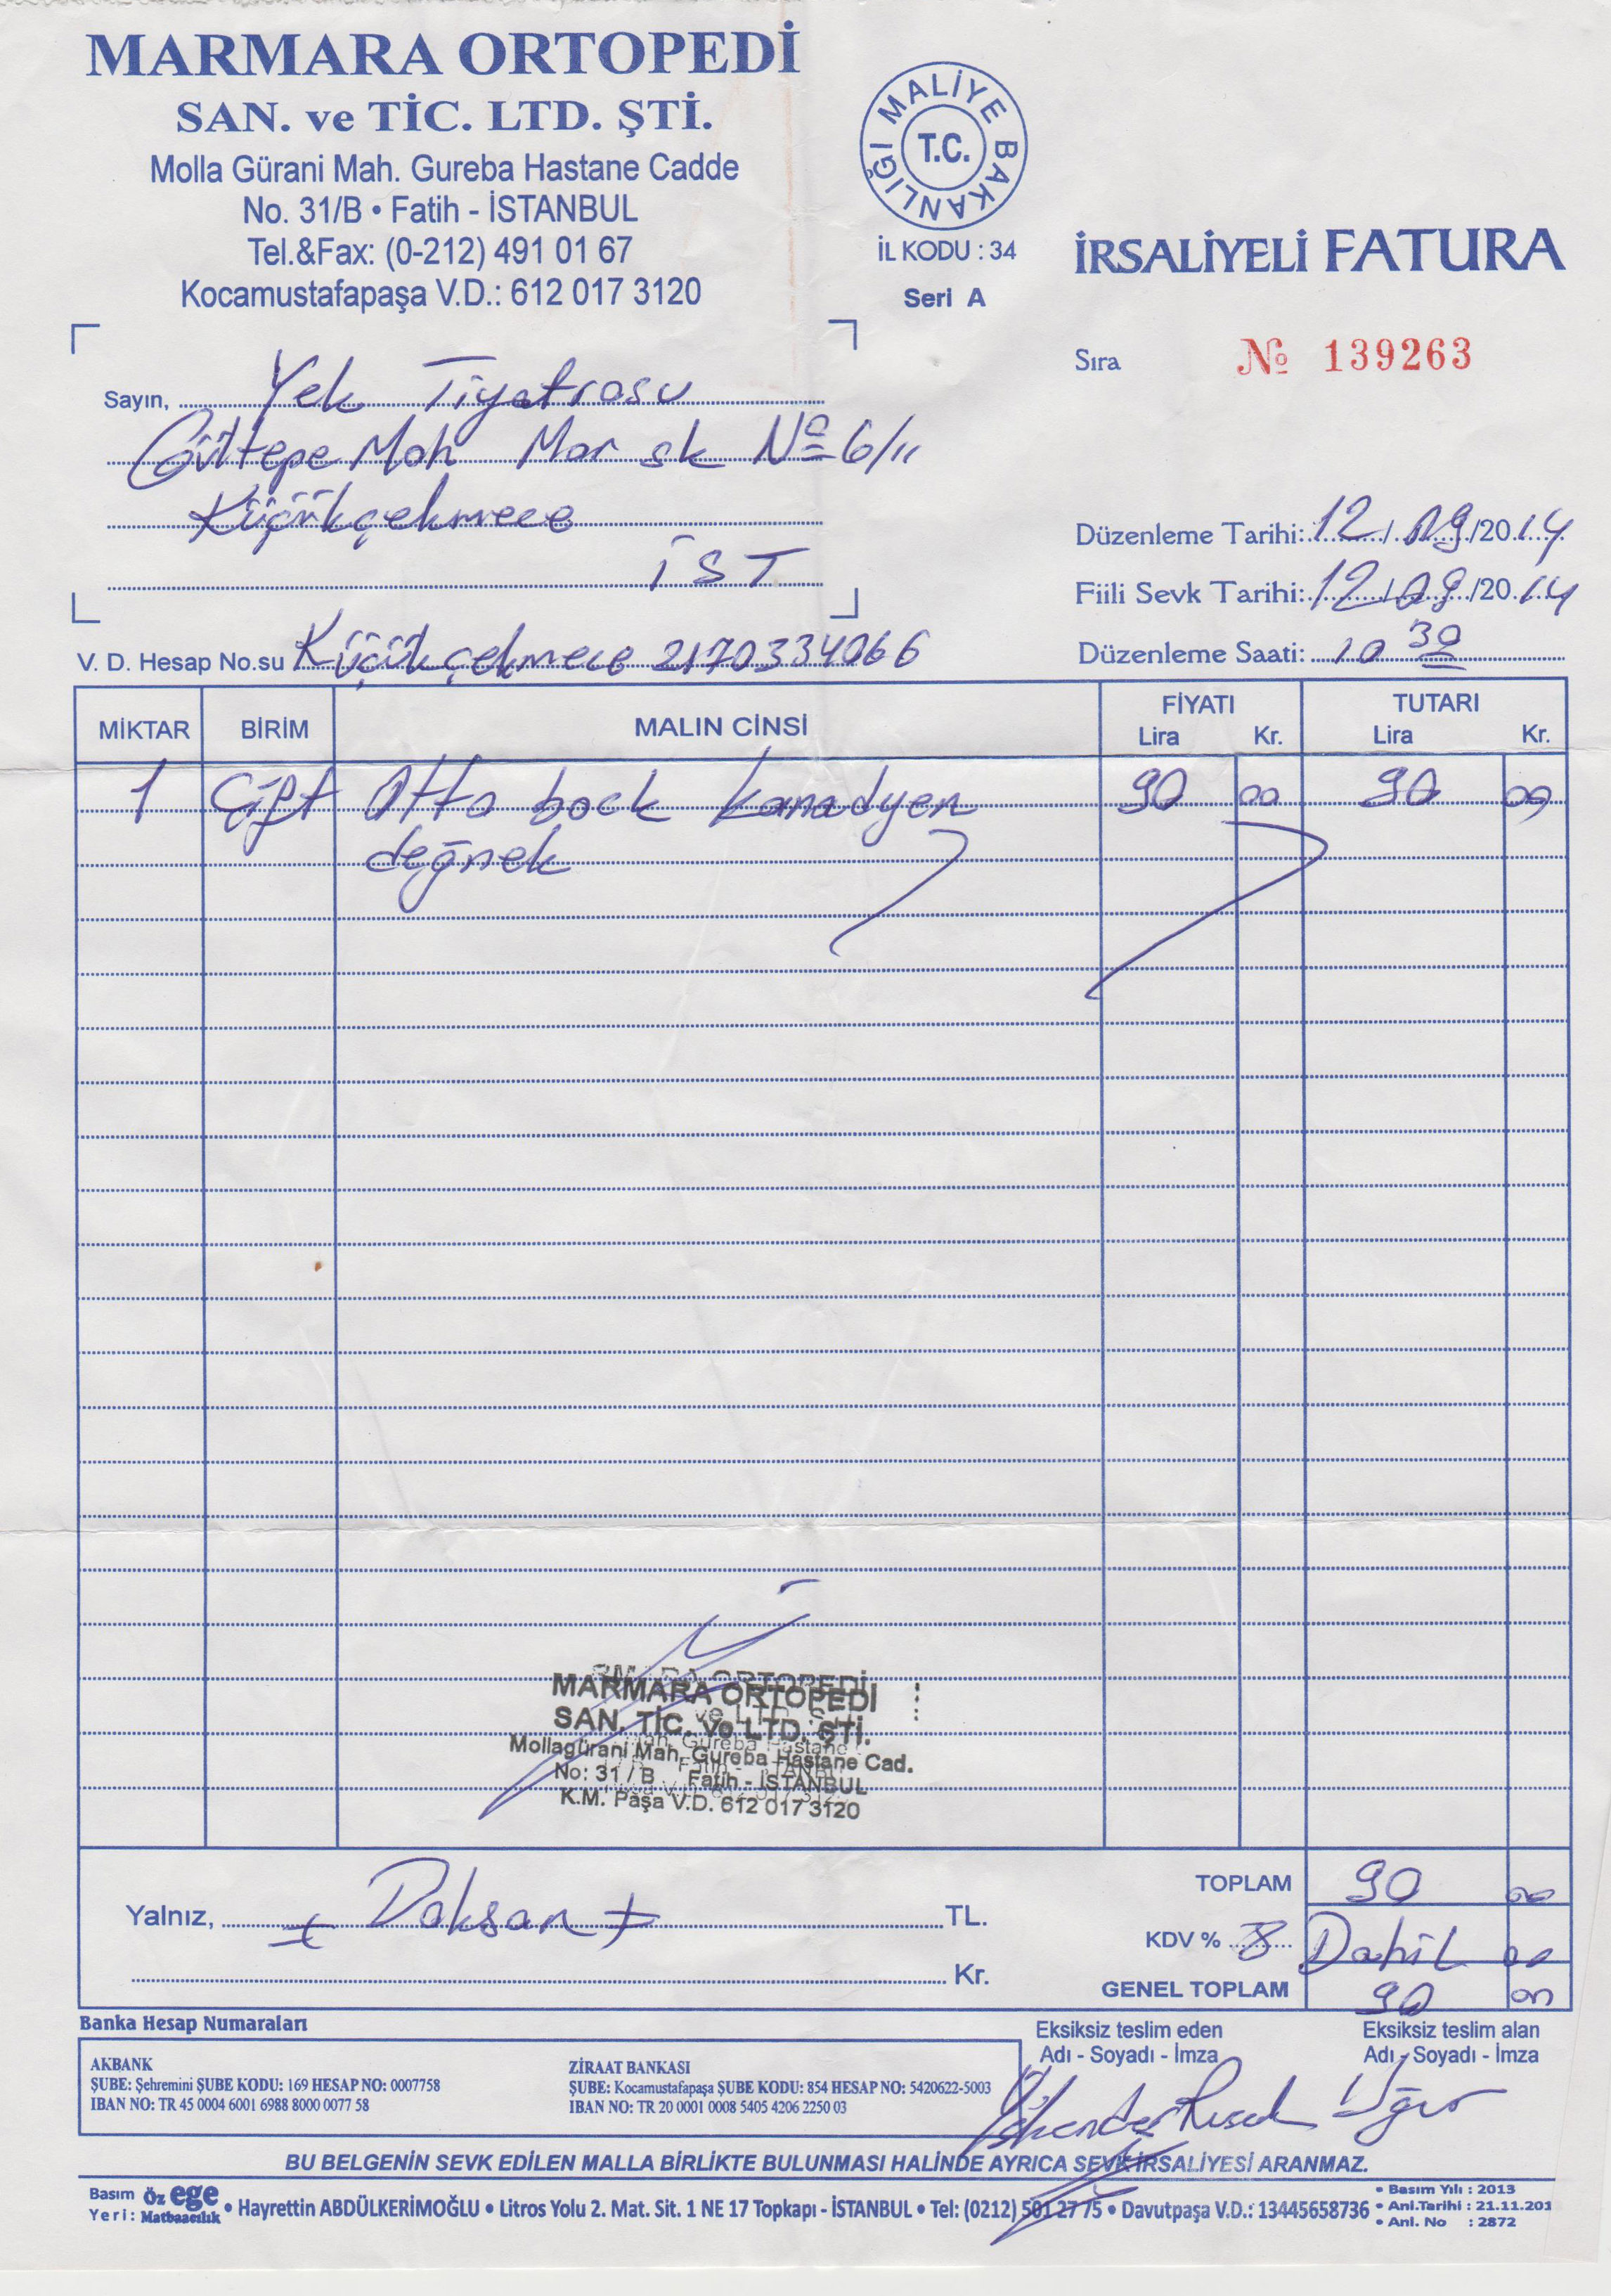 MARMARA ORTOPEDİ
SAN. ve TİC. LTD. ŞTİ.
Molla Gürani Mah. Gureba Hastane Cadde
No. 31/B • Fatih - İSTANBUL
Tel.&Fax: (0-212) 491 01 67
Kocamustafapaşa V.D.: 612 017 3120
MALİYE BAKANLIĞI
T.C.
İL KODU : 34
Seri A
İRSALİYELİ FATURA
Sıra № 139263
Sayın, Yek Tiyatrosu
Gültepe Mah Mar sk Nº 6/11
Küçükçekmece
İST
Düzenleme Tarihi: 12/09/2014
Fiili Sevk Tarihi: 12/09/2014
Düzenleme Saati: 10 30
V. D. Hesap No.su Küçükçekmece 2170334066
MİKTAR BİRİM MALIN CİNSİ FİYATI TUTARI
Lira Kr. Lira Kr.
1 Çift Otto bock kanadyen 90 00 90 00
değnek
MARMARA ORTOPEDİ
SAN. TİC. ve LTD. ŞTİ.
Mollagürani Mah. Gureba Hastane Cad.
No: 31 / B Fatih - İSTANBUL
K.M. Paşa V.D. 612 017 3120
TOPLAM 90 00
Yalnız, Doksan TL.
KDV % 8 Dahil 00
Kr.
GENEL TOPLAM 90 00
Banka Hesap Numaraları
AKBANK
ŞUBE: Şehremini ŞUBE KODU: 169 HESAP NO: 0007758
IBAN NO: TR 45 0004 6001 6988 8000 0077 58
ZİRAAT BANKASI
ŞUBE: Kocamustafapaşa ŞUBE KODU: 854 HESAP NO: 5420622-5003
IBAN NO: TR 20 0001 0008 5405 4206 2250 03
Eksiksiz teslim eden
Adı - Soyadı - İmza
İskender
Eksiksiz teslim alan
Adı - Soyadı - İmza
Uğur
BU BELGENİN SEVK EDİLEN MALLA BİRLİKTE BULUNMASI HALİNDE AYRICA SEVK İRSALİYESİ ARANMAZ.
Basım Yeri: Öz ege Matbaacılık • Hayrettin ABDÜLKERİMOĞLU • Litros Yolu 2. Mat. Sit. 1 NE 17 Topkapı - İSTANBUL • Tel: (0212) 501 27 75 • Davutpaşa V.D.: 13445658736
• Basım Yılı : 2013
• Anl.Tarihi : 21.11.201
• Anl. No : 2872